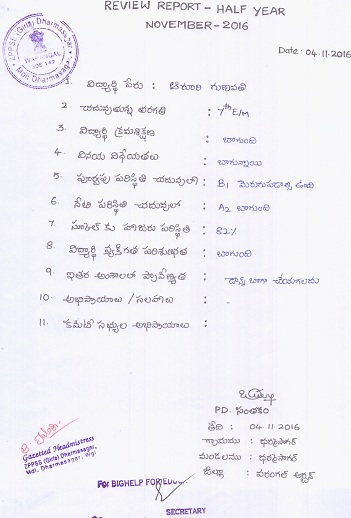 REVIEW REPORT - HALF YEAR
NOVEMBER - 2016
Date : 04.11.2016
ZPPSS (Girls) Dharmasagar, Mdl. Dharmasagar
WARANGAL
506 142
1. విద్యార్థి పేరు : గుణవతి
2. చదువుతున్న తరగతి : 7th E/M
3. విద్యార్థి క్రమశిక్షణ : బాగుంది
4. వినయ విధేయతలు : బాగున్నాయి
5. పూర్వపు పరిస్థితి చదువులో : B1 మెరుగుపడాల్సి ఉంది
6. నేటి పరిస్థితి చదువులో : A2 బాగుంది
7. స్కూల్ కు హాజరు పరిస్థితి : 82%
8. విద్యార్థి వ్యక్తిగత పరిశుభ్రత : బాగుంది
9. ఇతర అంశాలలో ప్రావీణ్యత : డాన్స్ బాగా చేయగలదు
10. అభిప్రాయాలు / సలహాలు : -
11. కమిటీ సభ్యుల అభిప్రాయాలు :
P.D. సంతకం
తేది : 04.11.2016
గ్రామము : ధర్మసాగర్
మండలము : ధర్మసాగర్
జిల్లా : వరంగల్ అర్బన్
Gazetted Headmistress
ZPPSS (Girls) Dharmasagar,
Mdl. Dharmasagar, Wgl
For BIGHELP FOR EDUC
SECRETARY